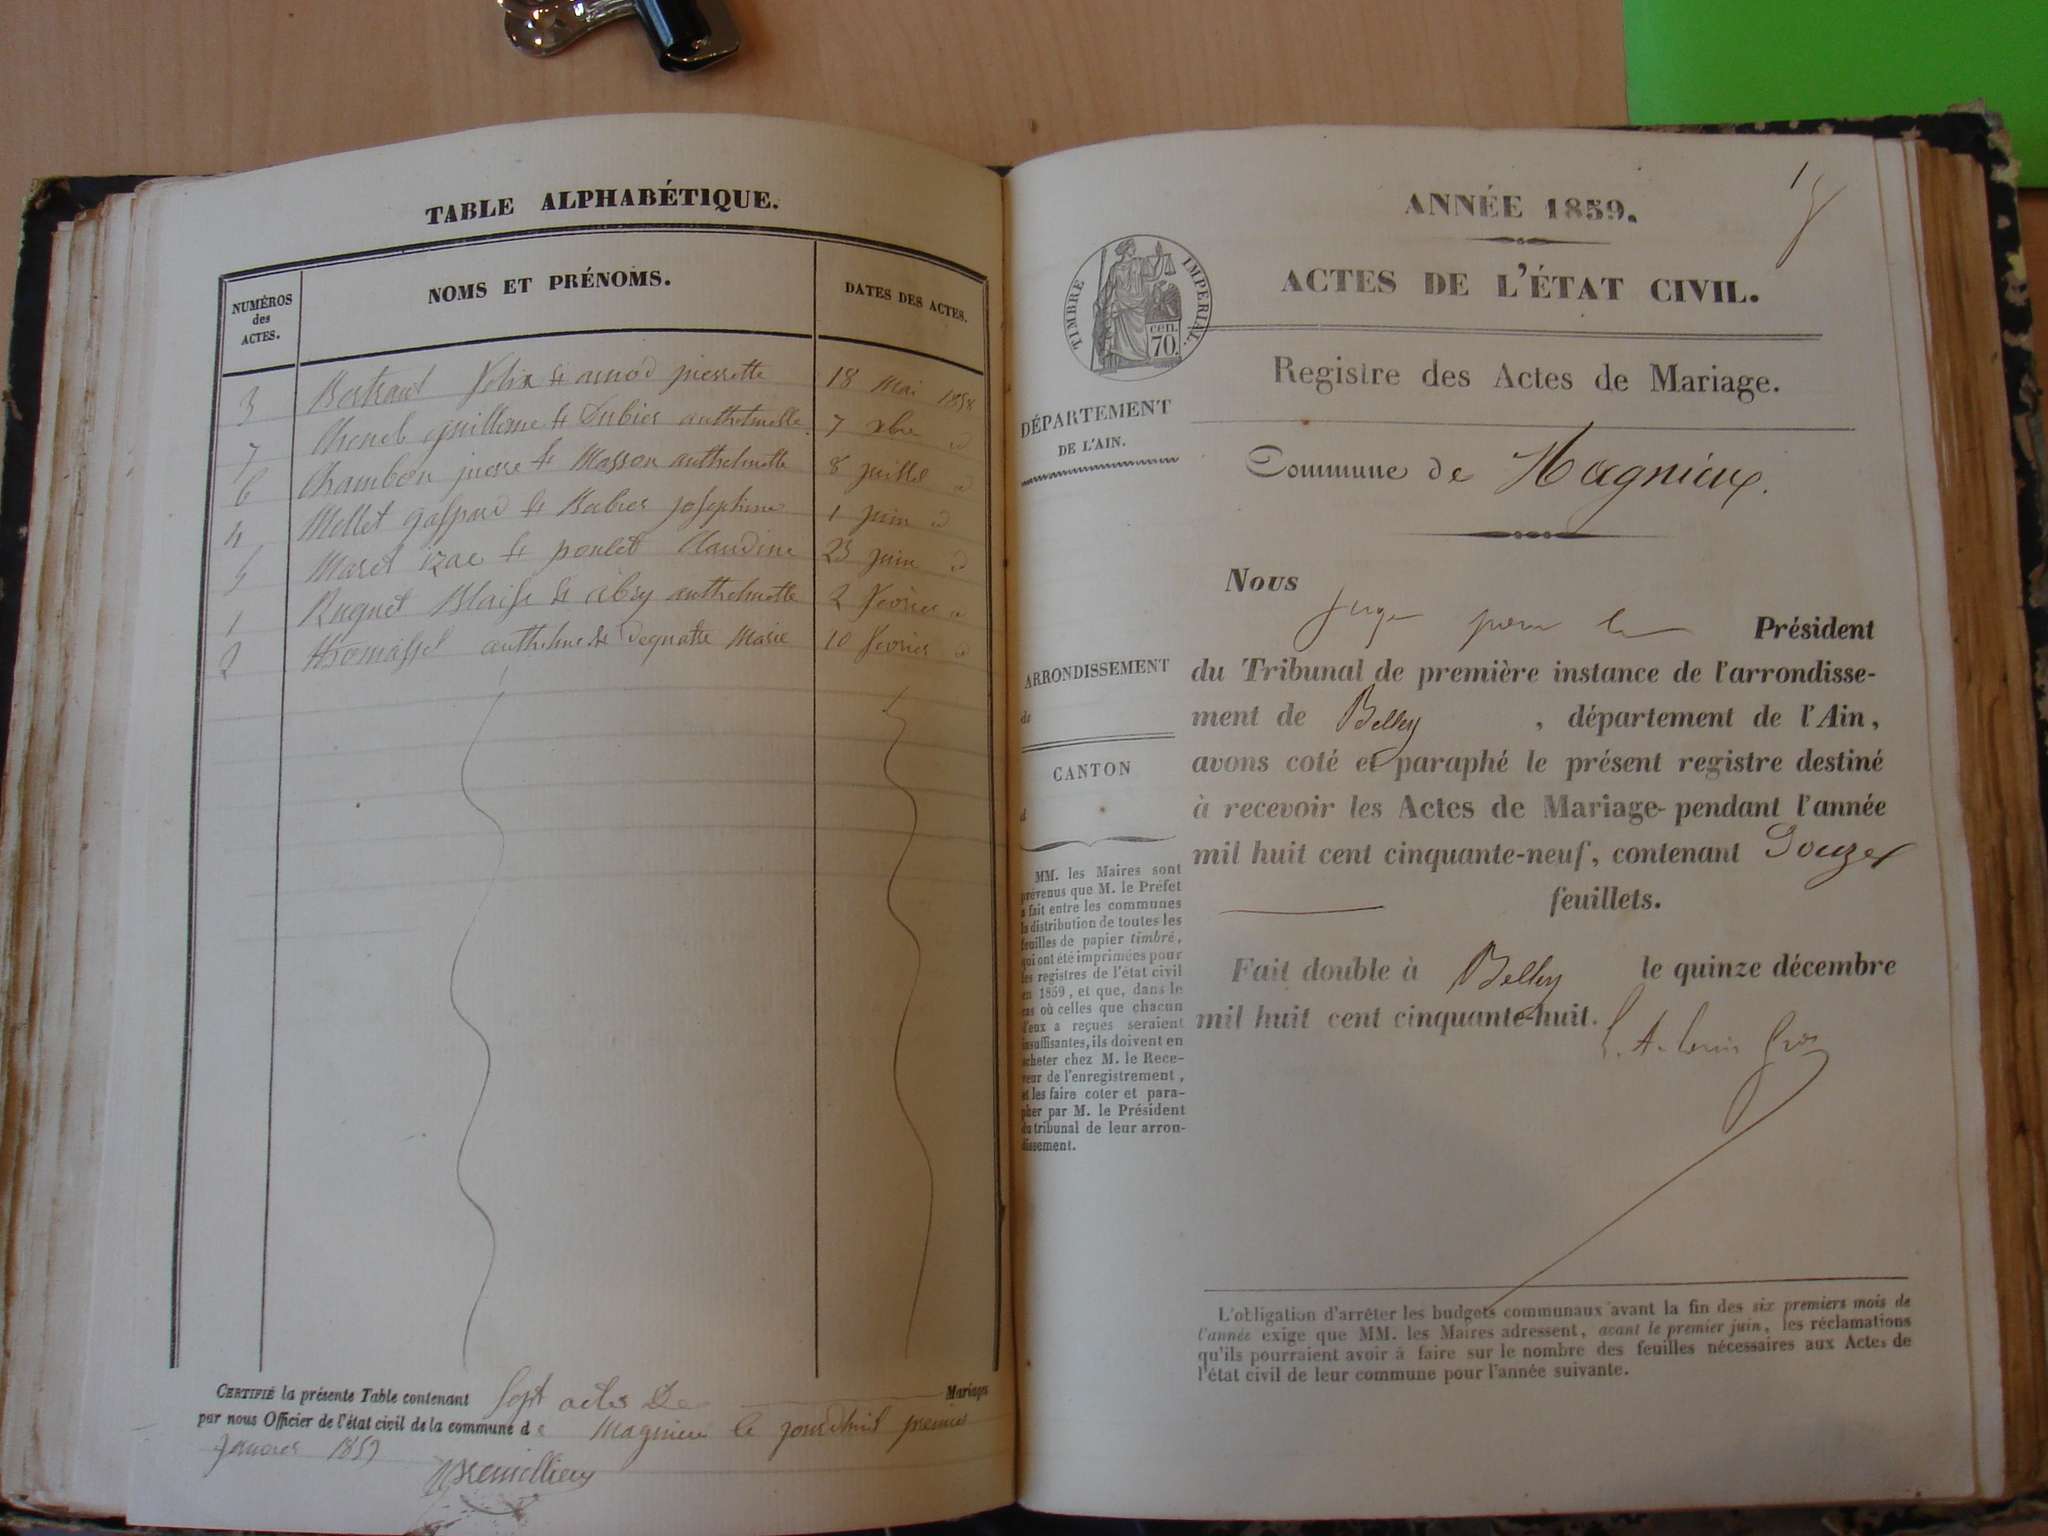 TABLE ALPHABÉTIQUE.
NUMÉROS des ACTES. NOMS ET PRÉNOMS. DATES DES ACTES.
3 Bertrand Felix & pierrette 18 Mai 1858
7 guillaume & anthelmette 7 xbre d
6 Chambon pierre & Masson anthelmette 8 juillet d
4 Mollet gaspard & Barbier josephine 1 juin d
5 Maret izac & poulet Claudine 23 juin d
1 Ruguet Blaise & abry anthelmette 2 Fevrier d
2 thomasset anthelme & Dequatre Marie 10 fevrier d
CERTIFIÉ la présente Table contenant Sept actes De Mariages
par nous Officier de l'état civil de la commune de Magnieu le jourdhui premier
Janvier 1859
1
ANNÉE 1859.
TIMBRE IMPERIAL.
70. cen.
ACTES DE L'ÉTAT CIVIL.
Registre des Actes de Mariage.
DÉPARTEMENT
DE L'AIN.
Commune de Magnieux.
ARRONDISSEMENT
de
CANTON
d
MM. les Maires sont
prévenus que M. le Préfet
a fait entre les communes
la distribution de toutes les
feuilles de papier timbré,
qui ont été imprimées pour
les registres de l'état civil
en 1859, et que, dans le
cas où celles que chacun
d'eux a reçues seraient
insuffisantes, ils doivent en
acheter chez M. le Rece-
veur de l'enregistrement,
et les faire coter et para-
pher par M. le Président
du tribunal de leur arron-
dissement.
Nous
juge pour le Président
du Tribunal de première instance de l'arrondisse-
ment de Belley, département de l'Ain,
avons coté et paraphé le présent registre destiné
à recevoir les Actes de Mariage pendant l'année
mil huit cent cinquante-neuf, contenant Douze
feuillets.
Fait double à Belley le quinze décembre
mil huit cent cinquante-huit.
L'obligation d'arrêter les budgets communaux avant la fin des six premiers mois de
l'année exige que MM. les Maires adressent, avant le premier juin, les réclamations
qu'ils pourraient avoir à faire sur le nombre des feuilles nécessaires aux Actes de
l'état civil de leur commune pour l'année suivante.